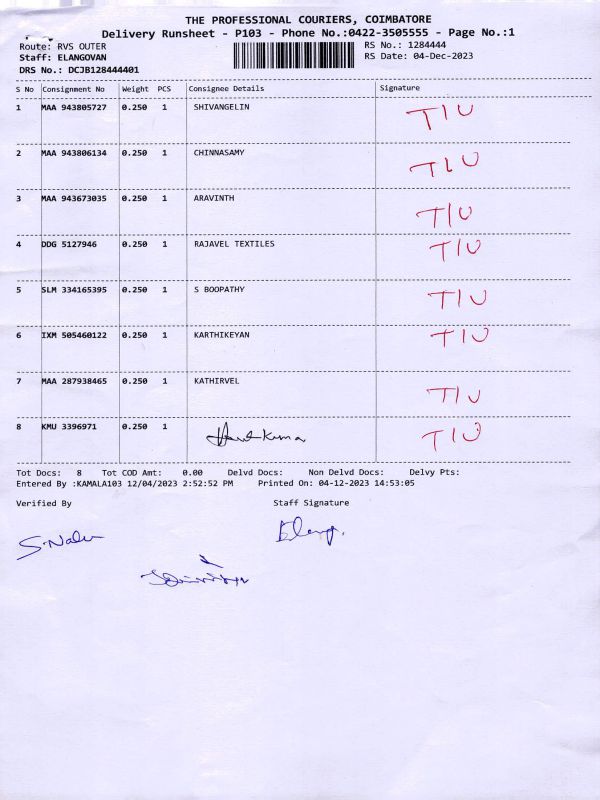 THE PROFESSIONAL COURIERS, COIMBATORE
Delivery Runsheet - P103 - Phone No.:0422-3505555 - Page No.:1
Route: RVS OUTER RS No.: 1284444
Staff: ELANGOVAN RS Date: 04-Dec-2023
DRS No.: DCJB128444401
S No Consignment No Weight PCS Consignee Details Signature
1 MAA 943805727 0.250 1 SHIVANGELIN TIU
2 MAA 943806134 0.250 1 CHINNASAMY TIU
3 MAA 943673035 0.250 1 ARAVINTH TIU
4 DDG 5127946 0.250 1 RAJAVEL TEXTILES TIU
5 SLM 334165395 0.250 1 S BOOPATHY TIU
6 IXM 505460122 0.250 1 KARTHIKEYAN TIU
7 MAA 287938465 0.250 1 KATHIRVEL TIU
8 KMU 3396971 0.250 1 TIU
Tot Docs: 8 Tot COD Amt: 0.00 Delvd Docs: Non Delvd Docs: Delvy Pts:
Entered By :KAMALA103 12/04/2023 2:52:52 PM Printed On: 04-12-2023 14:53:05
Verified By Staff Signature